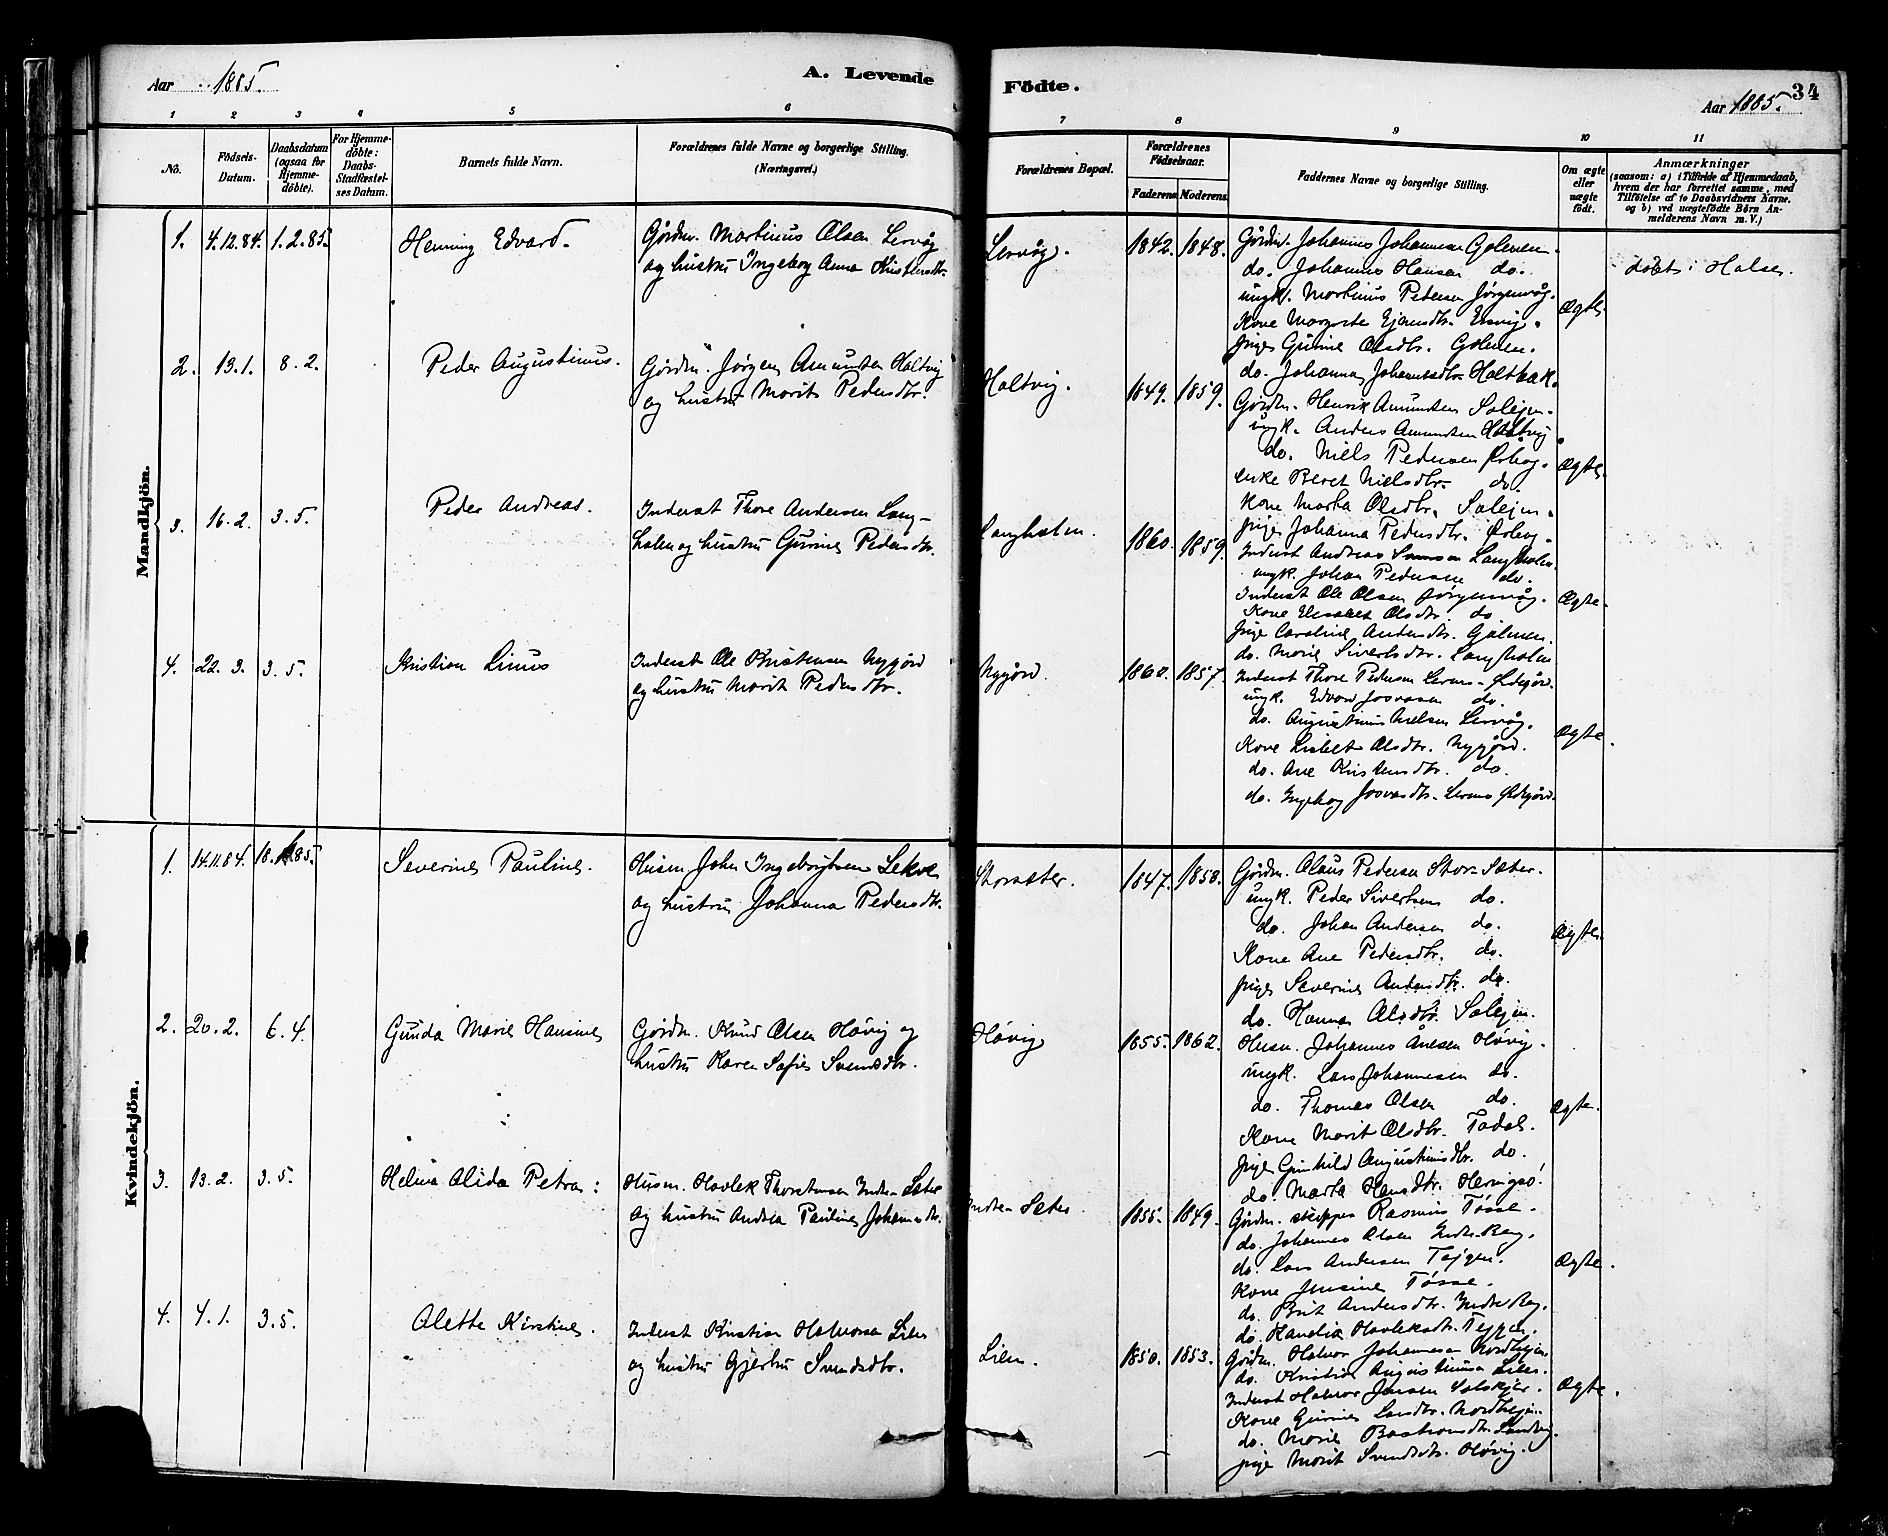 Aar 1885.
A. Levende
Födte.
Aar 1885.
34
1 2 3 4 5 6 7 8 9 10 11
No.
Födsels-
Datum.
Daabsdatum
(ogsaa for
Hjemme-
döbte).
For Hjemme-
döbte:
Daabs-
Stadfæstel-
ses Datum.
Barnets fulde Navn.
Forældrenes fulde Navne og borgerlige Stilling.
(Næringsvei.)
Forældrenes Bopæl.
Forældrenes
Födselsaar.
Faderens.
Moderens.
Faddernes Navne og borgerlige Stilling.
Om ægte
eller
uægte
födt.
Anmærkninger
(saasom: a) i Tilfælde af Hjemmedaab,
hvem der har forrettet samme, med
Tilföielse af to Daabsvidners Navne.
og b) ved uægtefödte Börn An-
melderens Navn m. V.)
Mandkjön.
1. 4.12.84. 1.2.85. Henning Edvard.
Gårdm. Martinus Olsen Lervåg
og hustru Ingeborg Anna Kristensdtr.
Lervåg. 1842. 1848.
Gårdm. Johannes Johannesen Golmen.
do. Johannes Hansen do.
ungk. Martinus Pedersen Jørgenvåg.
Kone Margrete Ejensdtr. Ervig.
pige Gurine Olsdtr. Golmen.
do. Johanna Johannesdtr. Holtbak.
Ægte.
døbt i Halse.
2. 13.1. 8.2. Peder Augustinus.
Gårdm. Jørgen Amundsen Holtvig
og hustru Marit Pedersdtr.
Holtvig. 1849. 1859.
Gårdm. Henrik Amundsen Solejen.
ungk. Anders Amundsen Holtvig
do. Niels Pedersen
enke Beret Nielsdtr. do.
Kone Marta Olsdtr. Solejen.
pige Johanna Pedersdtr.
Ægte.
3. 16.2. 3.5. Peder Andreas.
Inderst Thore Andersen Lang-
holen og hustru Gurine Pedersdtr.
Langholen. 1860. 1859.
Inderst Andreas Langholen.
ungk. Johan Pedersen do.
Inderst Ole Olsen Jørgenvåg.
Kone Elisabet Olsdtr. do
pige Caroline Andersdtr. Golmen.
do. Marie Sivertsdtr. Langholen
Ægte.
4. 22.3. 3.5. Kristian Linus
Inderst Ole Kristensen Nygård
og hustru Marit Pedersdtr.
Nygård. 1860. 1857.
Inderst Thore Pedersen Ødegård.
ungk. Edvard Josvasen do.
do. Augustinus Nielsen Lervåg.
Kone Lisbet Olsdtr. Nygård.
do. Ane Kristensdtr. do.
do. Ingebog Josvasdtr. Ødegård.
Ægte.
Kvindekjön.
1. 14.11.84. 18.1.85. Severine Pauline.
Husm. John Ingebrigtsen
og hustru Johanna Pedersdtr.
Storsæter. 1847. 1850.
Gårdm. Olaus Pedersen Stor-Sæter.
ungk. Peder Sivertsen do.
do. Johan Andersen do.
Kone Ane Pedersdtr. do.
pige Severine Andersdtr. do
do. Hanna Olsdtr. Solejen.
Ægte.
2. 20.2. 6.4. Gunda Marie Hansine
Gårdm. Knud Olsen Høvig og
hustru Karen Sofie Svendsdtr.
Høvig 1855. 1862.
Husm. Johannes Høvig.
ungk. Lars Johannesen do.
do. Thomas Olsen do.
Kone Marit Olsdtr. Todal.
pige Gunhild Augustinusdtr. do.
do. Marta Hansdtr. Heringsø.
Ægte.
3. 13.2. 3.5. Helma Alida Petra:
Husm. Havlek Thorstensen Indre-Sæter
og hustru Andrea Pauline Johannesdtr.
Indre-Sæter. 1855. 1849.
Gårdm. skipper Rasmus Tøsse.
do. Johannes Olsen Indre-Røg.
do. Lars Andersen Tejgen.
Kone Jensine Tøsse.
do. Brit Andersdtr. Indre Røg.
do. Havleksdtr. Tejgen.
Ægte.
4. 4.1. 3.5. Olette Kirstine.
Inderst Kristian Halvorsen Lien
og hustru Gjertru Svendsdtr.
Lien. 1850. 1853.
Gårdm. Halvor Johannesen Nordhejen.
do. Kristian Augustinusen Lien.
Inderst Halvor Jensen
Kone Gurine Larsdtr. Nordhejen.
do. Marie Bastiansdtr. Sandvig.
pige Marit Svendsdtr. Høvig.
Ægte.